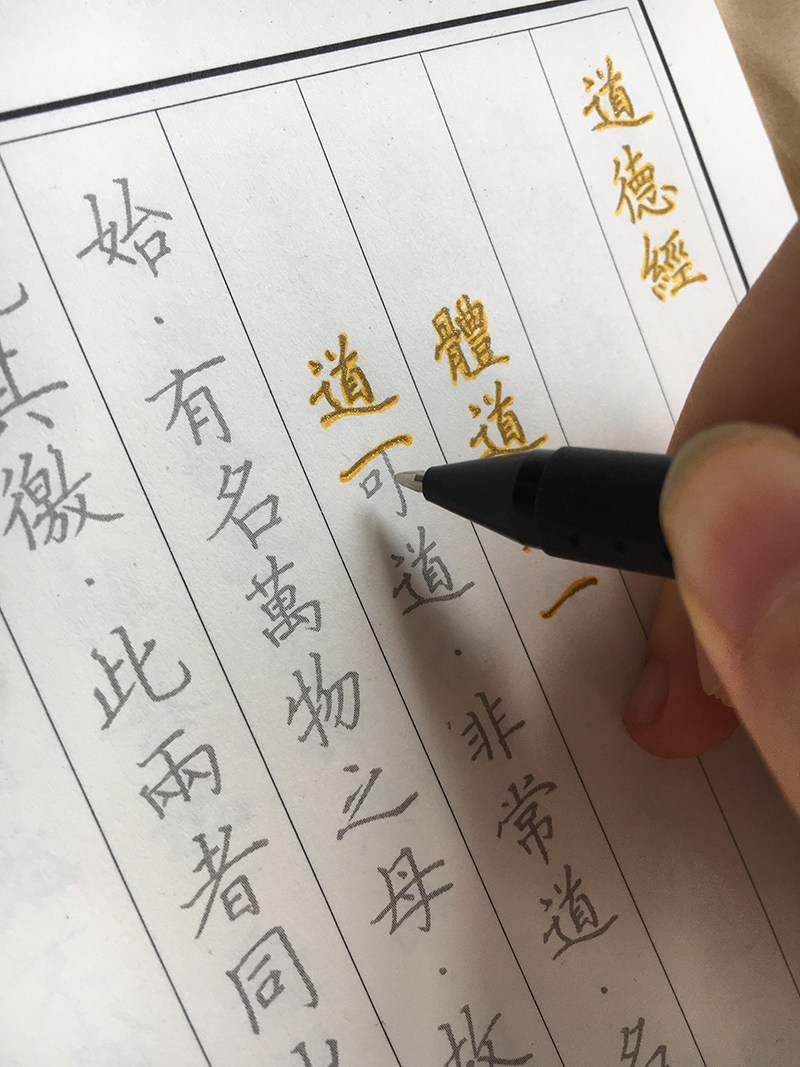 道德經
體道一
道可道·非常道·名
始·有名萬物之母·故
其徼·此兩者同